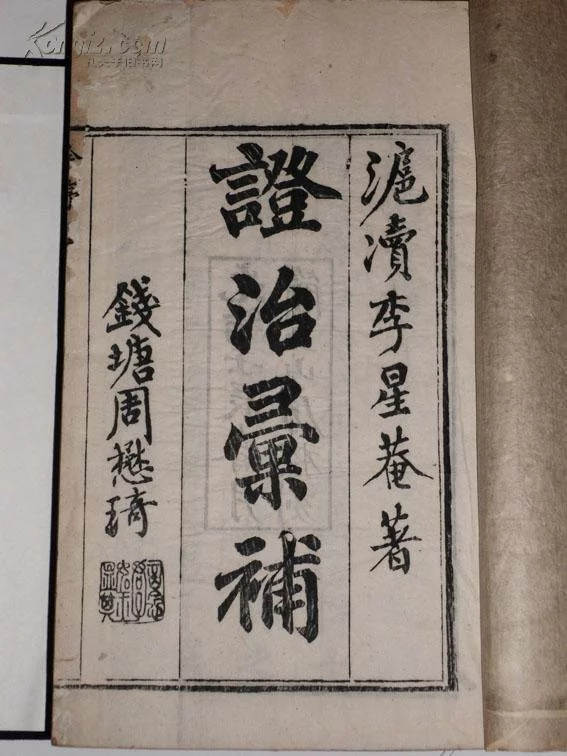 滬瀆李星菴著
證治彙補
錢塘周懋琦
Kongfz.com
孔夫子旧书网